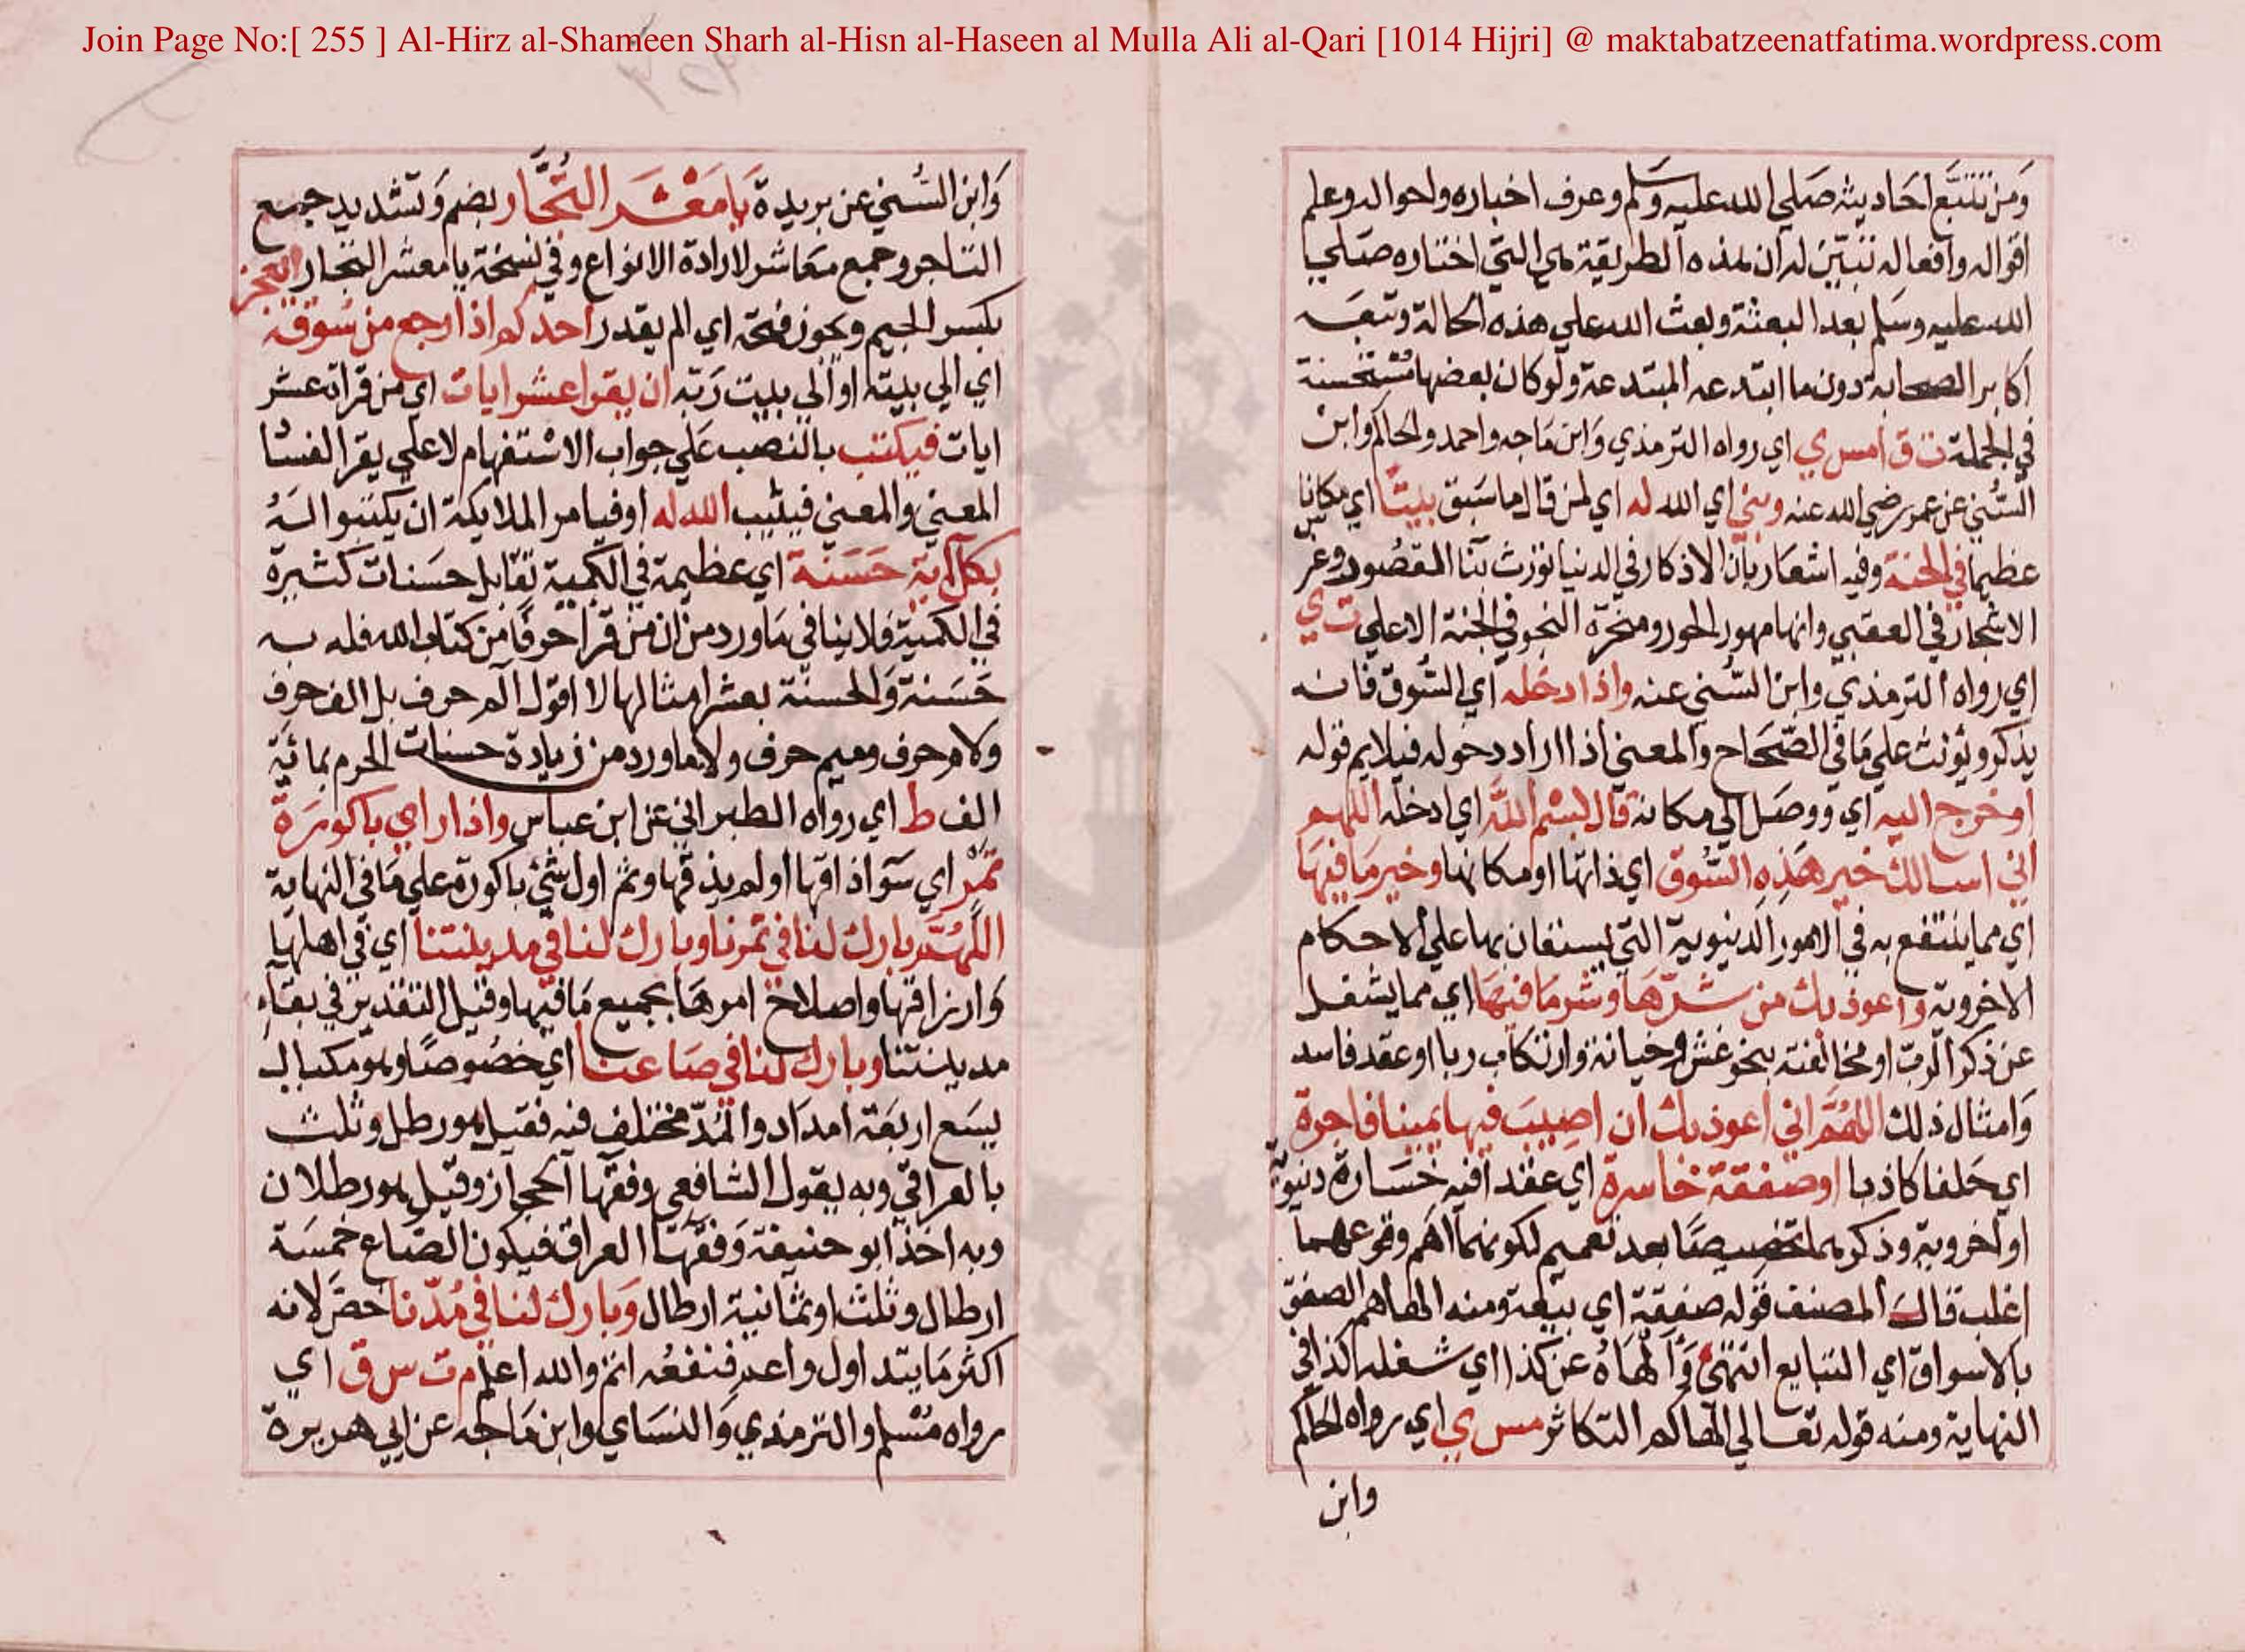 Join Page No:[ 255 ] Al-Hirz al-Shameen Sharh al-Hisn al-Haseen al Mulla Ali al-Qari [1014 Hijri] @ maktabatzeenatfatima.wordpress.com
وَمن تتبَّع احَاديثه صَلي الله عليه وسَلم وعرف اخباره واحواله وعلم
اقواله وافعاله تبيّن له ان هذه الطريقة هي التي اختاره صَلي
الله عليه وسَلم بعد البعثة وبعث الله علي هذه الحالة وتبعَه
اكابر الصحابة دون ما ابتدعه المبتدعة ولو كان بعضها مُستحسنة
في الجملة ت ق ا مس ي اي رواه الترمذي وَابن مَاجه واحمد والحاكم وابن
السُّني عن عمر رضي الله عنه وبني اي الله له اي لمن قال ما سَبق بيتًا اي مكانا
عظيما في الجنة وفيه اشعار بان الاذكار في الدنيا تورث بنا القصُور وغرس
الاشجار في العقبي وانها مهور الحور في الجنة الاعلي ت ي
اي رواه الترمذي وابن السُّني عنه واذا دخله اي السُّوق فانه
يذكر ويؤنث علي مَا في الصّحَاح والمعني اذا اراد دخوله فيلايم قوله
او خرج اليه اي ووصَل الي مكانه قال بسْم اللهِ اي ادخله اللهم
اني اسالك خير هَذِهِ السُّوق اي ذاتها او مكانها وخير مَا فيهَا
اي مما ينتفع به في الامور الدنيوية التي يستعان بها علي الاحكام
الاخروية واعوذ بك من شرّهَا وَشر مَا فيهَا اي مما يشغل
عن ذكر الرب او مخالفته بنحو غش وخيانة وارتكاب ربا او عقد فاسد
وَامثال ذلك اللهُمَّ اني اعوذ بك ان اصِيبَ فيها يمينا فاجرة
اي حَلفا كاذبا او صفقة خاسرة اي عقدا فيه خسَارة دنيوية
او اخروية وذكرهما تخصيصًا بعد تعميم لكونهما اهَم ووقوعهما
اغلب قالَ المصنف قوله صفقة اي بيعة ومنه الهاهم الصفق
بالاسواق اي التبايع انتهيٰ وَ اَلْهَاهُ عن كذا اي شغله كذا في
النهاية ومنه قوله تعالي الهاكم التكاثر مس ي اي رواه الحاكم
وابن
وَابن السُّني عن بريدة يَا مَعْشَرَ التُّجَّار بضم وَتشديد جمع
التاجر وجمع مَعَاشر لارادة الانواع وفي نسخة يا معشر التجار ايعجز
بكسر الجيم ويجوز فتحه اي الم يقدر احدكم اذا رجع من سُوقه
اي الي بيته او الي بيت رَبّه ان يقرا عشر ايات اي من قراة عشر
ايات فيكتب بالنصب عَلي جواب الاسْتفهام لا علي يقرا لفسَاد
المعني والمعني فيثيب الله له او فيامر الملايكة ان يكتبوا لهُ
بكل آيَة حَسَنة اي عظيمة في الكمية تقابل حسَنات كثيرة
في الكميّة فلا ينافي مَا ورد من ان مَن قرا حرفًا من كتاب الله فله به
حَسَنة وَالحسنة بعشر امثالها لا اقول الٓم حرف بل الف حرف
ولام حرف وميم حرف ولا ما ورد من زيادة حسنات الحرم بمائة
الف ط اي رواه الطبراني عن ابن عباس واذا راي باكورَة
ثَمَرْ اي سَوآ ذاقها او لم يذقها وثم اول شئ باكورة علي مَا في النهاية
اللهُمَّ بارك لنا في ثمرنا وبارك لنا في مدينتنا اي في اهلها
وَارزاقها واصلاح امرهَا بجميع مَا فيها وقيل التقدير في بقاءِ
مدينتنا وبارك لنا في صَاعنا اي خصُوصًا وهو مكيال
يسَع اربعَة امدَاد والمُدّ مختلف فيه فقيل هو رطل وثلث
بالعراقي وبه يقول الشافعي وفقها الحجاز وقيل هو رطلان
وبه اخذ ابو حنيفة وَفقهَا العراق فيكون الصَّاع خمسَة
ارطال وثلثا او ثمانية ارطال وَبارك لنا في مُدّنا خصّ لانه
اكثر مَا يتداول واعد فنفعُه اتم والله اعلم م ت س ق اي
رواه مُسْلم والترمذي وَالنسَاي وابن مَاجه عن ابي هريرة